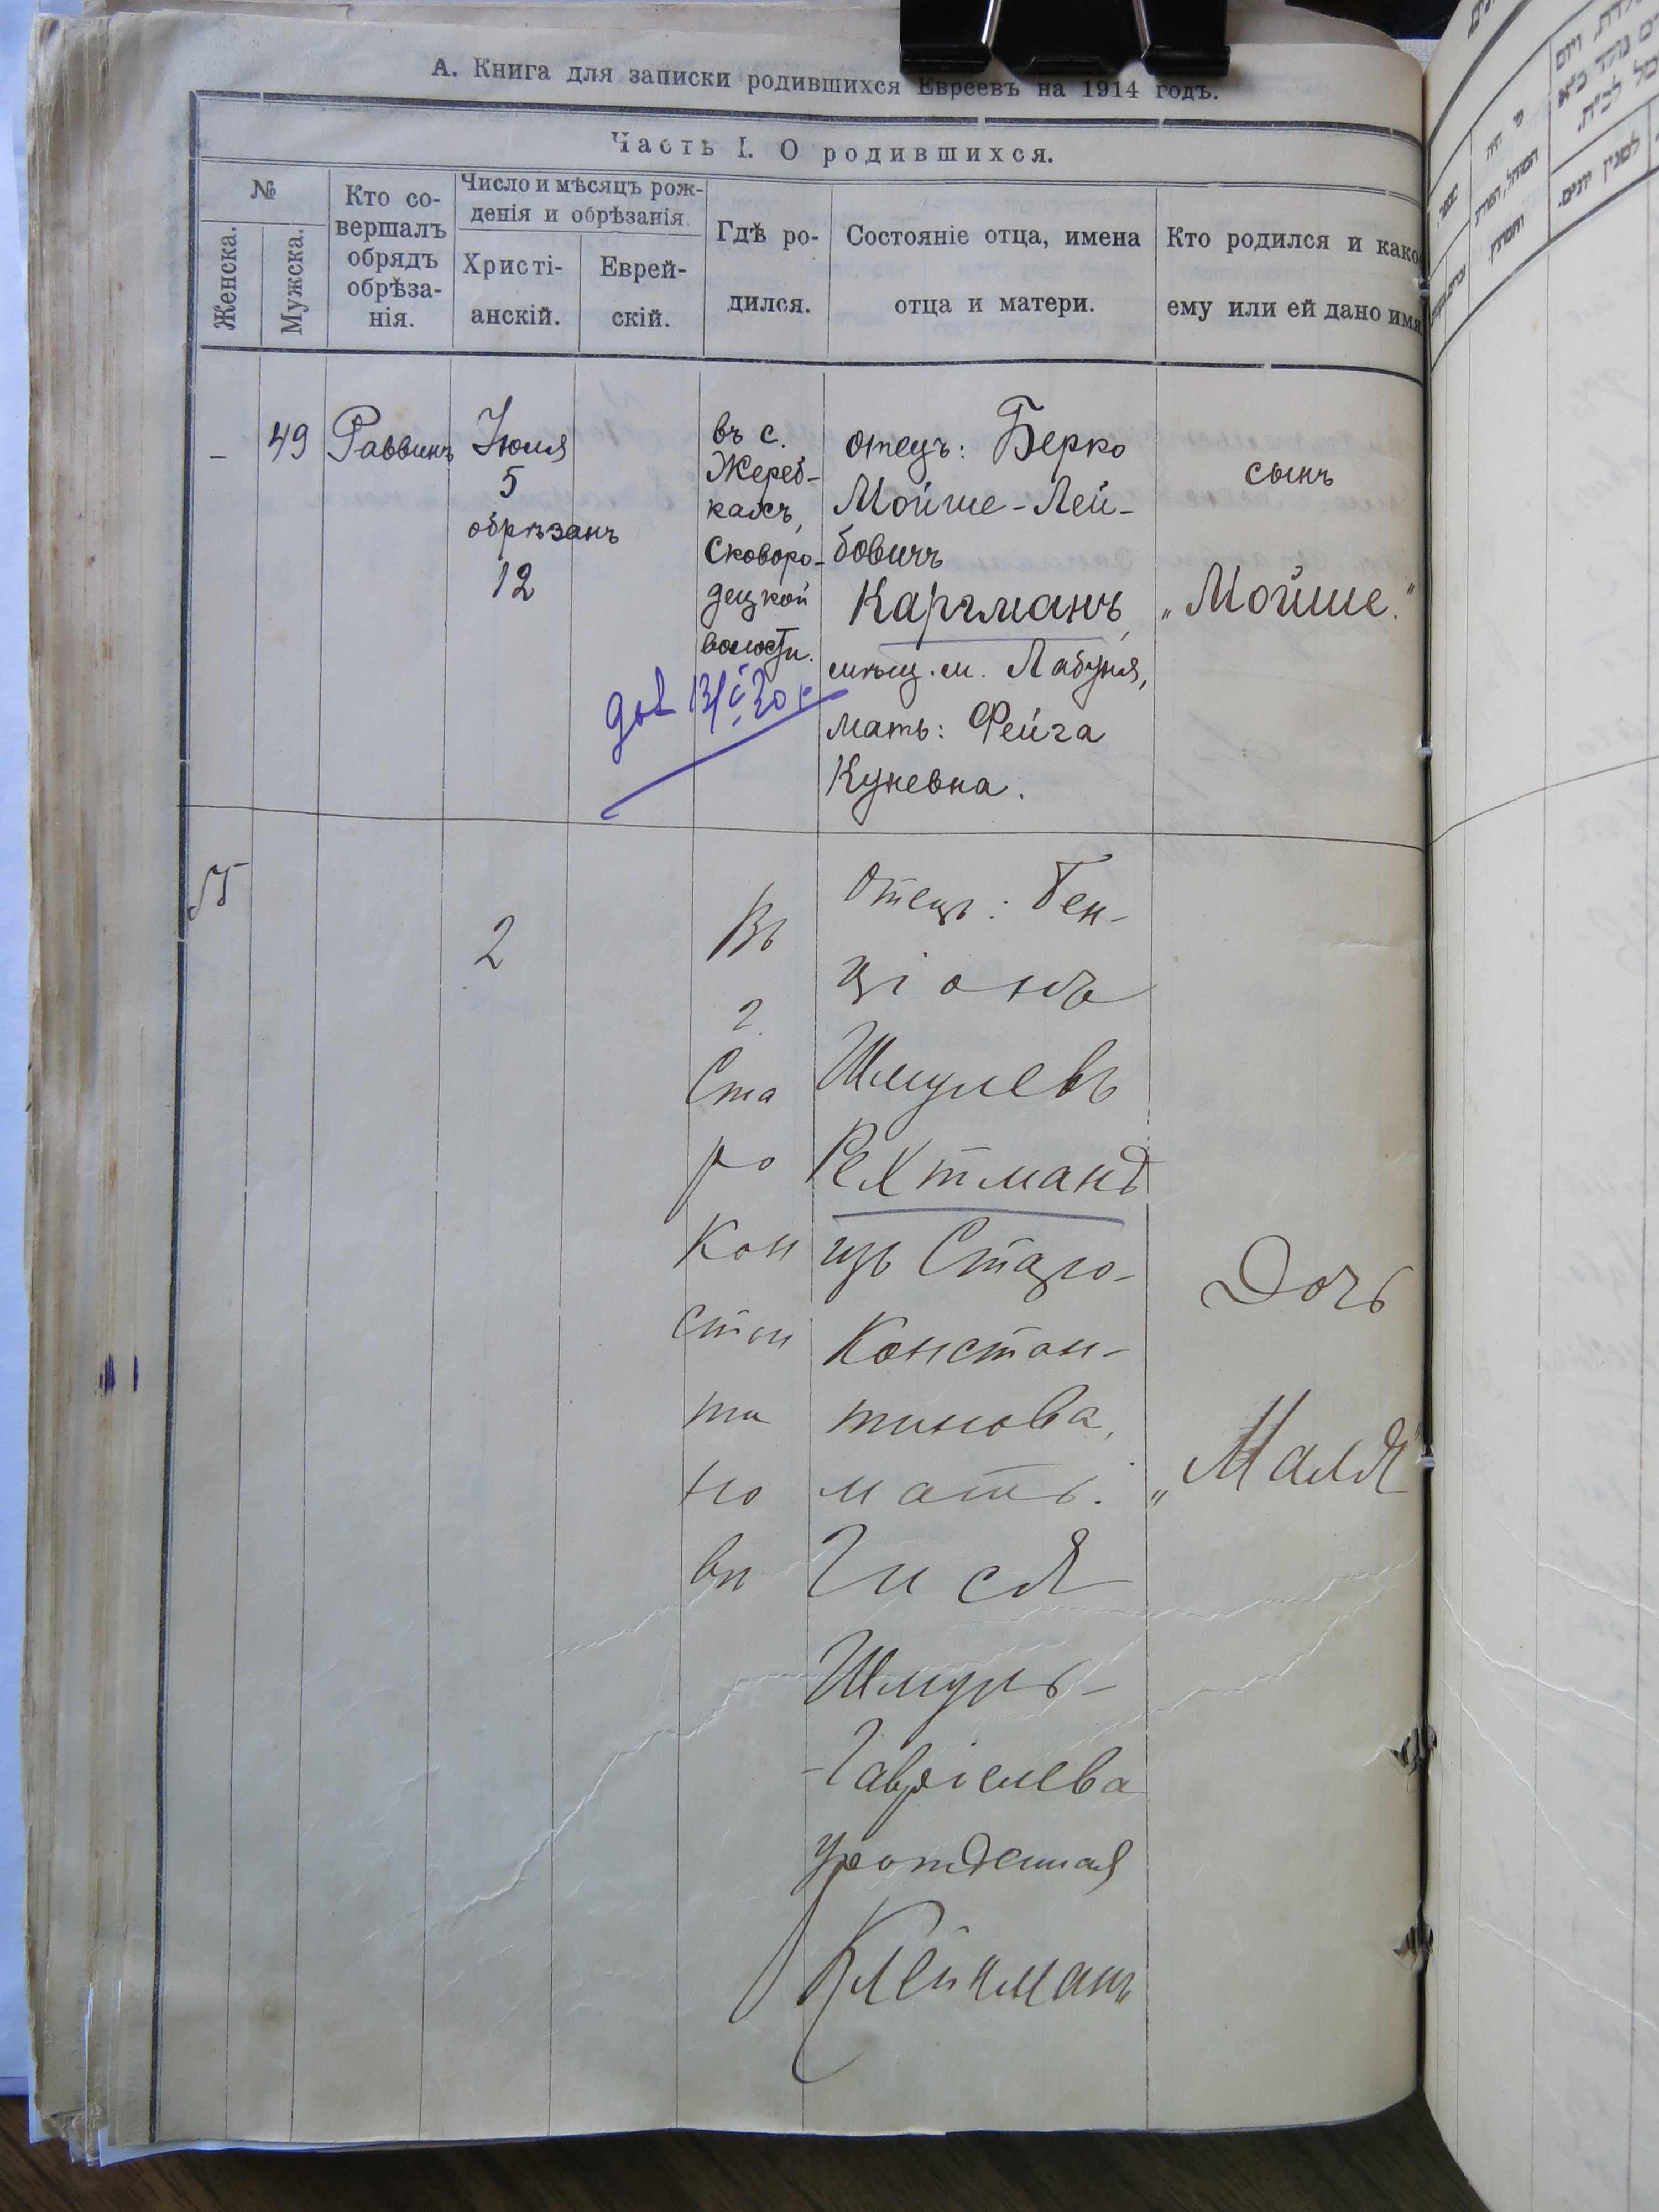 А. Книга для записки родившихся Евреевъ на 1914 годъ.
Часть I. О родившихся.
№
Женска.
Мужска.
Кто со-
вершалъ
обрядъ
обрѣза-
нія.
Число и мѣсяцъ рож-
денія и обрѣзанія.
Христі-
анскій.
Еврей-
скій.
Гдѣ ро-
дился.
Состояніе отца, имена
отца и матери.
Кто родился и како
ему или ей дано имя
–
49
Раввинъ
Іюля
5
обрѣзанъ
12
въ с.
Жереб-
кахъ,
Сковоро-
децкой
волости.
отецъ: Берко
Мойше-Лей-
бовичъ
Каргманъ,
мѣщ. м. Лабуня,
мать: Фейга
Куневна.
сынъ
„Мойше."
2
Въ
г.
Ста
ро
Кон
стан
ти
но
вѣ
Отецъ: Бен-
ціонъ
Шмулевъ
Рехтманъ
изъ Старо-
Констан-
тинова,
мать:
Гися
Шмуль-
-Гавріелева
урожденная
Клейнманъ
Дочь
„Маля"